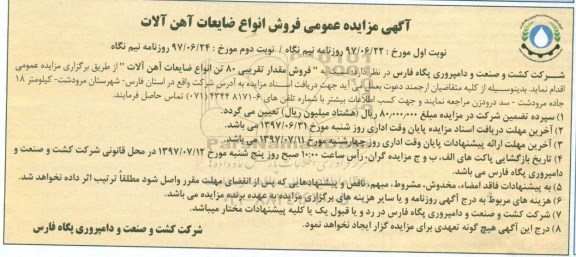 آگهی مزایده عمومی فروش انواع ضایعات آهن آلات
نوبت اول مورخ : ۹۷/۰۶/۲۲ روزنامه نیم نگاه / نوبت دوم مورخ : ۹۷/۰۶/۲۴ روزنامه نیم نگاه
شرکت کشت و صنعت و دامپروری پگاه فارس در نظر دارد نسبت به " فروش مقدار تقریبی ۸۰ تن انواع ضایعات آهن آلات " از طریق برگزاری مزایده عمومی
اقدام نماید. بدینوسیله از کلیه متقاضیان ارجمند دعوت بعمل می آید جهت دریافت اسناد مزایده به آدرس شرکت واقع در استان فارس- شهرستان مرودشت- کیلومتر ۱۸
جاده مرودشت - سد درودزن مراجعه نمایند و جهت کسب اطلاعات بیشتر با شماره تلفن های ۶-۸۱۷۱ ۴۳۴۴ (۰۷۱) تماس حاصل فرمایند.
۱) سپرده تضمین شرکت در مزایده مبلغ ۸۰,۰۰۰,۰۰۰ ریال (هشتاد میلیون ریال) تعیین می گردد.
۲) آخرین مهلت دریافت اسناد مزایده پایان وقت اداری روز شنبه مورخ ۱۳۹۷/۰۶/۳۱ می باشد.
۳) آخرین مهلت ارائه پیشنهادات پایان وقت اداری روز چهارشنبه مورخ ۱۳۹۷/۰۷/۱۱ می باشد.
۴) تاریخ بازگشایی پاکت های الف، ب و ج مزایده گران، رأس ساعت ۱۰:۰۰ صبح روز پنج شنبه مورخ ۱۳۹۷/۰۷/۱۲ در محل قانونی شرکت کشت و صنعت و
دامپروری پگاه فارس می باشد.
۵) به پیشنهادات فاقد امضاء، مخدوش، مشروط، مبهم، ناقص و پیشنهادهایی که پس از انقضای مهلت مقرر واصل شود مطلقاً ترتیب اثر داده نخواهد شد.
۶) هزینه های مربوط به درج آگهی روزنامه و یا سایر هزینه های برگزاری مزایده به عهده برنده مزایده می باشد.
۷) شرکت کشت و صنعت و دامپروری پگاه فارس در رد و یا قبول یک یا کلیه پیشنهادات مختار میباشد.
۸) درج این آگهی هیچ گونه تعهدی برای مزایده گزار ایجاد نخواهد نمود.
شرکت کشت و صنعت و دامپروری پگاه فارس